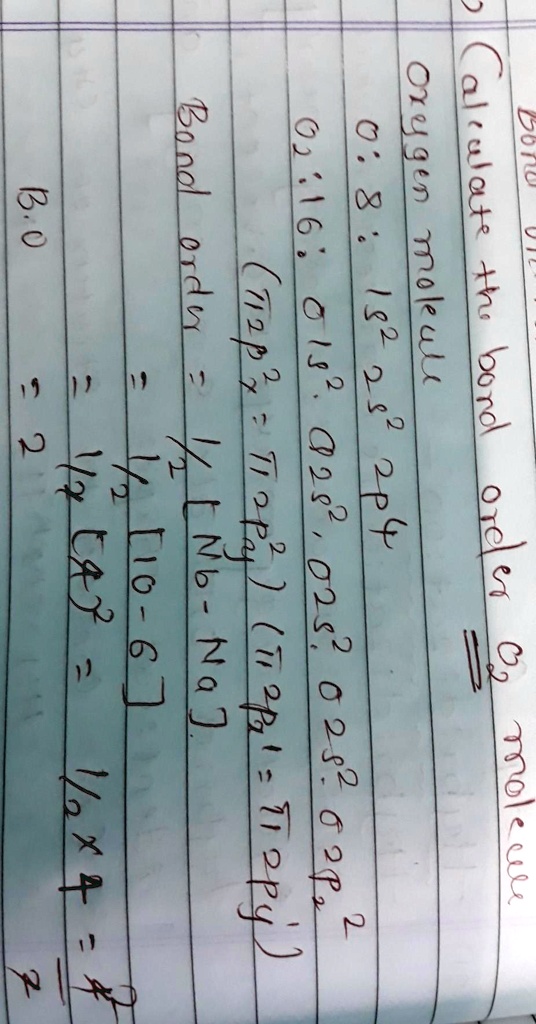 ) Calculate the bond order O₂ molecule
oxygen molecule
O: 8: 1s² 2s² 2p4
O₂: 16: σ1s². σ2s². σ2s². σ2s². σ2p₂²
(π2p²x = π2p²y) (π2px¹ = π2py¹)
Bond order = 1/2 [Nb - Na].
= 1/2 [10 - 6]
= 1/2 [4] = 1/2 × 4 =
2
B.O = 2